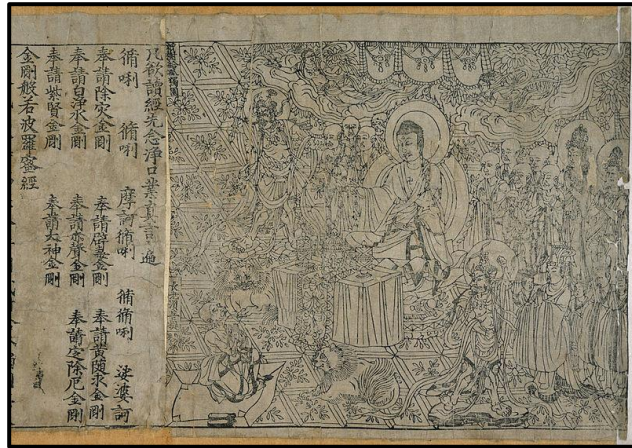 祇樹給孤獨園
凡欲讀經先念淨口業真言遍
脩唎 脩唎 摩訶脩唎 脩脩唎 娑婆訶
奉請除灾金剛 奉請辟毒金剛 奉請黃隨求金剛
奉請白淨水金剛 奉請赤聲金剛 奉請定除厄金剛
奉請紫賢金剛 奉請大神金剛
金剛般若波羅蜜經